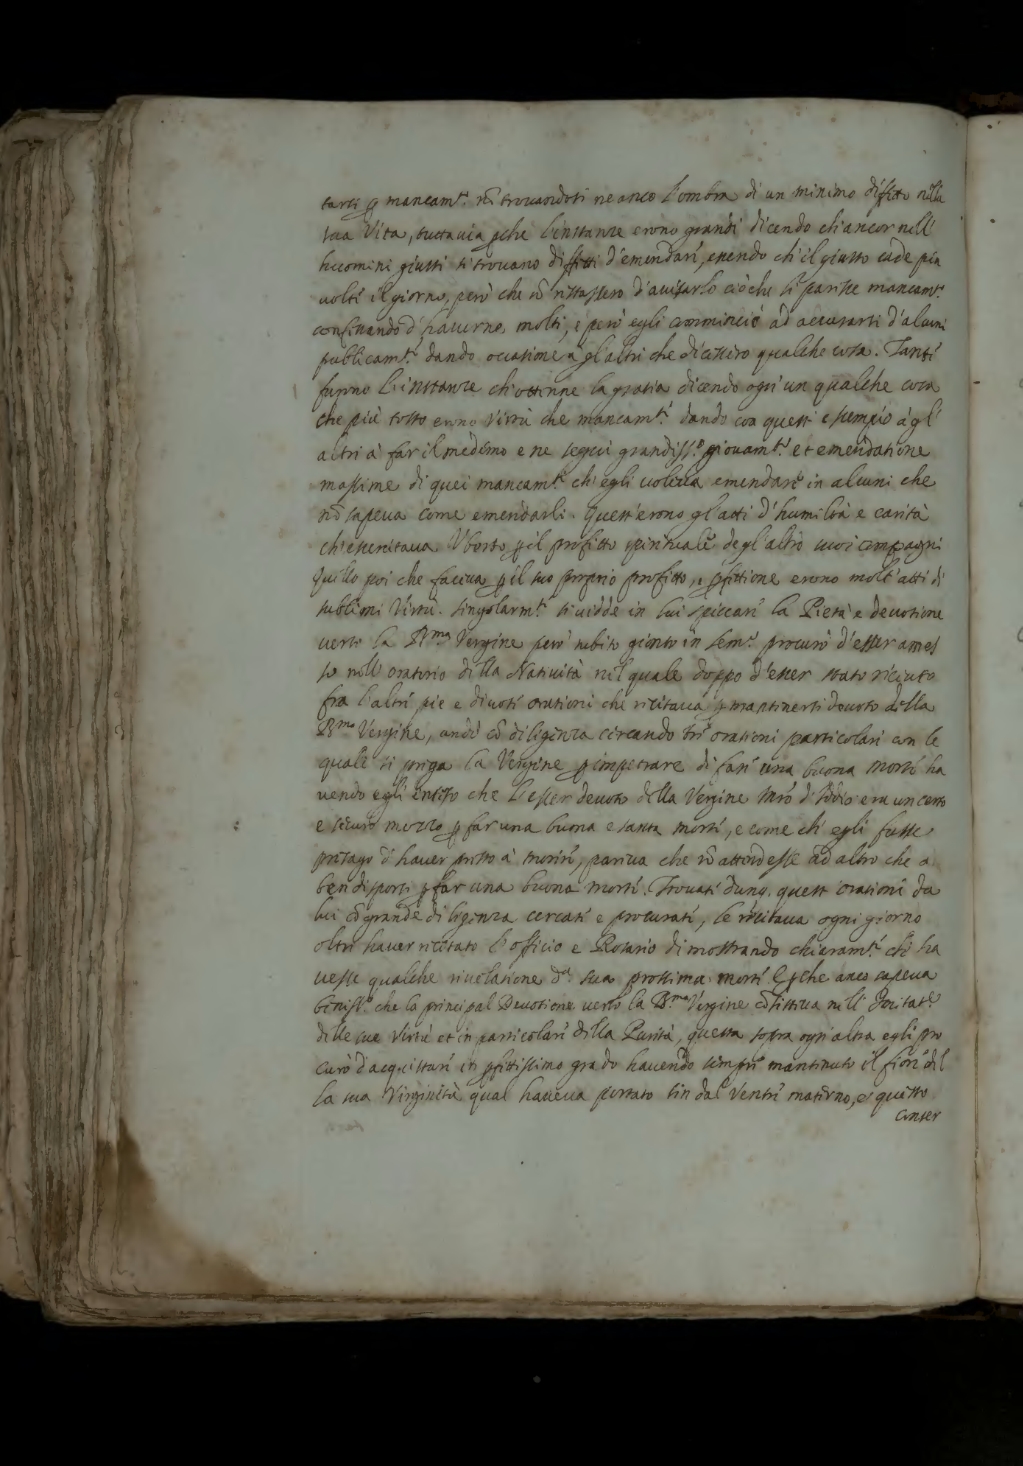 tarsi ꝑ mancam.ti nō trovandosi ne anco l'ombra di un minimo difetto nella
sua Vita, tuttavia ꝑche l'instanze erono grandi dicendo ch'ancor nell'
huomini giusti si trovano difetti d'emendarsi, essendo ch'il giusto cade più
volte il giorno, però che nō restassero d'avisarlo ciò che li parisse mancam.to
confessando d'haverne molti, e però egli cominciò ad accusarsi d'alcuni
publicam.te dando occasione a gl'altri che dicessero qualche cosa. Tanti
furno l'instanze ch'ottenne la gratia dicendo ogn'un qualche cosa
che più tosto erono virtù che mancam.ti dando con questi essempio à gl'
altri à far il medemo e ne seguì grandiss.o giovam.to et emendatione
massime di quei mancam.ti ch'egli voleva emendare in alcuni che
nō sapeva come emendarli. Quest'erono gl'atti d'humiltà e carità
ch'essercitava Uberto ꝑ il profitto spirituale degl'altri suoi compagni
quello poi che faceva ꝑ il suo proprio profitto, e ꝑfettione erono molt'atti di
sublimi Virtù. singolarm.te si vidde in lui spiccare la Pietà e devotione
verso la B.ma Vergine però subito gionto in Sem.o procurò d'esser ames
so nell'oratorio della Natività nel quale doppo d'esser stato riceuto
fra l'altre pie e divote orationi che recitava ꝑ mantenersi devoto della
B.ma Vergine, andò cō diligenza cercando tre orationi particolari con le
quale si priega la Vergine ꝑ impetrare di fare una buona morte ha
vendo egli inteso che l'esser devoto della Vergine Mre d'Iddio era un certo
e sicuro mezzo ꝑ far una buona e santa morte, e come ch'egli fusse
presago d'haver presto à morire, pareva che nō attendesse ad altro che a
ben disporsi ꝑ far una buona morte. Trovate dunq. quest'orationi da
lui cō grande diligenza cercate e procurate, le recitava ogni giorno
oltre haver recitato l'officio e Rosario dimostrando chiaram.te ch'ha
vesse qualche rivelatione d. sua prossima morte. E ꝑche anco sapeva
beniss.o che la principal Devotione verso la B.ma Vergine cōsisteva nell'imitat.e
delle sue Virtù et in particolare della Purità, questa sopra ogn'altra egli pro
curò d'acquistare in ꝑfettissimo grado havendo sempre mantenuto il fiore del
la sua Virginità qual haveva portato sin dal ventre materno, e questo
conser